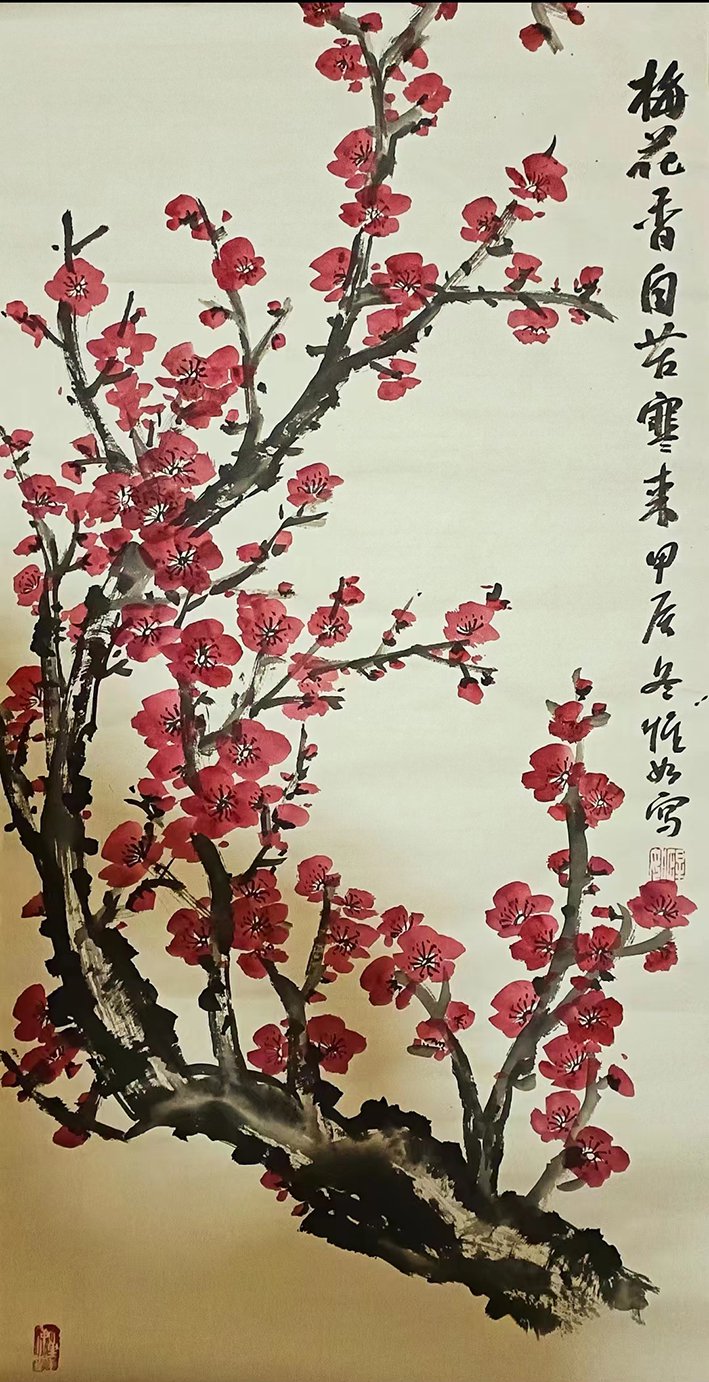 梅花香自苦寒来甲辰冬惟如写